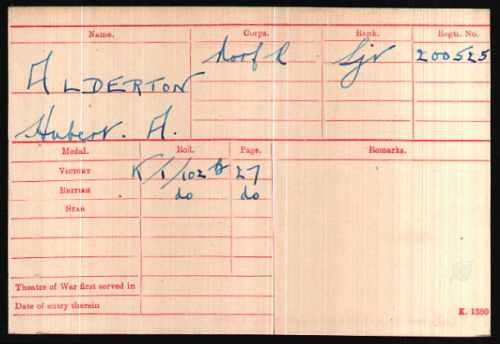 Name. Corps. Rank. Regtl. No.
ALDERTON Norf R Sjt 200525
Hubert. A.
Medal. Roll. Page. Remarks.
VICTORY K/1/102 27
BRITISH do do
STAR
Theatre of War first served in
Date of entry therein
K. 1380